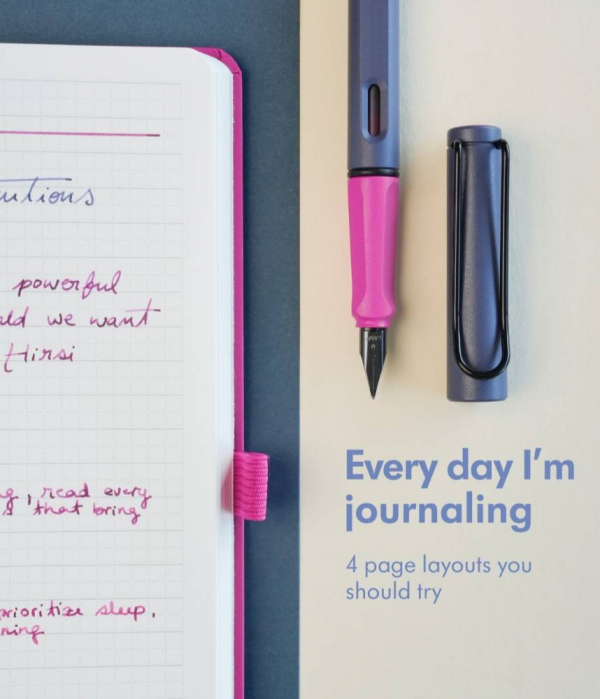 powerful
we want
Hirsi
, read every
that bring
prioritize sleep,
LAMY
Every day I'm
journaling
4 page layouts you
should try